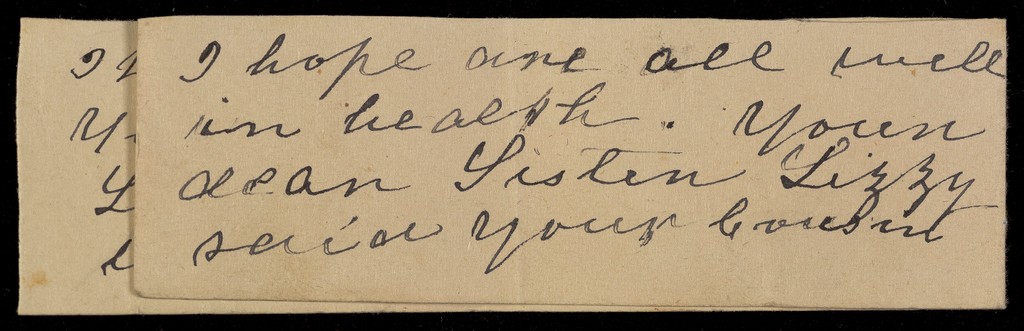 I hope are all well
in health. Your
dear Sister Lizzy
said your Cousin